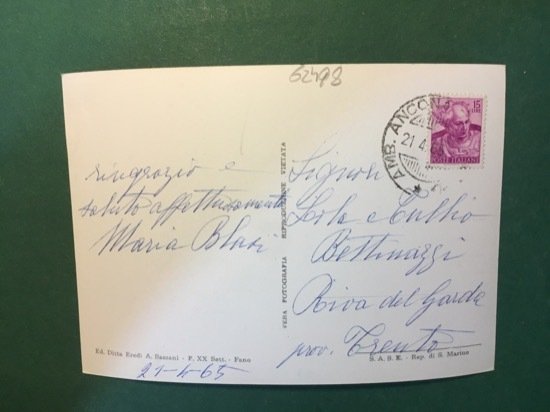 62498
AMB. ANCONA
21.4.
15
POSTE ITALIANE
ringrazio e
saluto affettuosamente
Maria Blasi
VERA FOTOGRAFIA RIPRODUZIONE VIETATA
Signori
Lola e Tullio
Bettinazzi
Riva del Garda
prov. Trento
Ed. Ditta Eredi A. Bazzani - P. XX Sett. - Fano
S. A. S. E. - Rep. di S. Marino
21-4-65